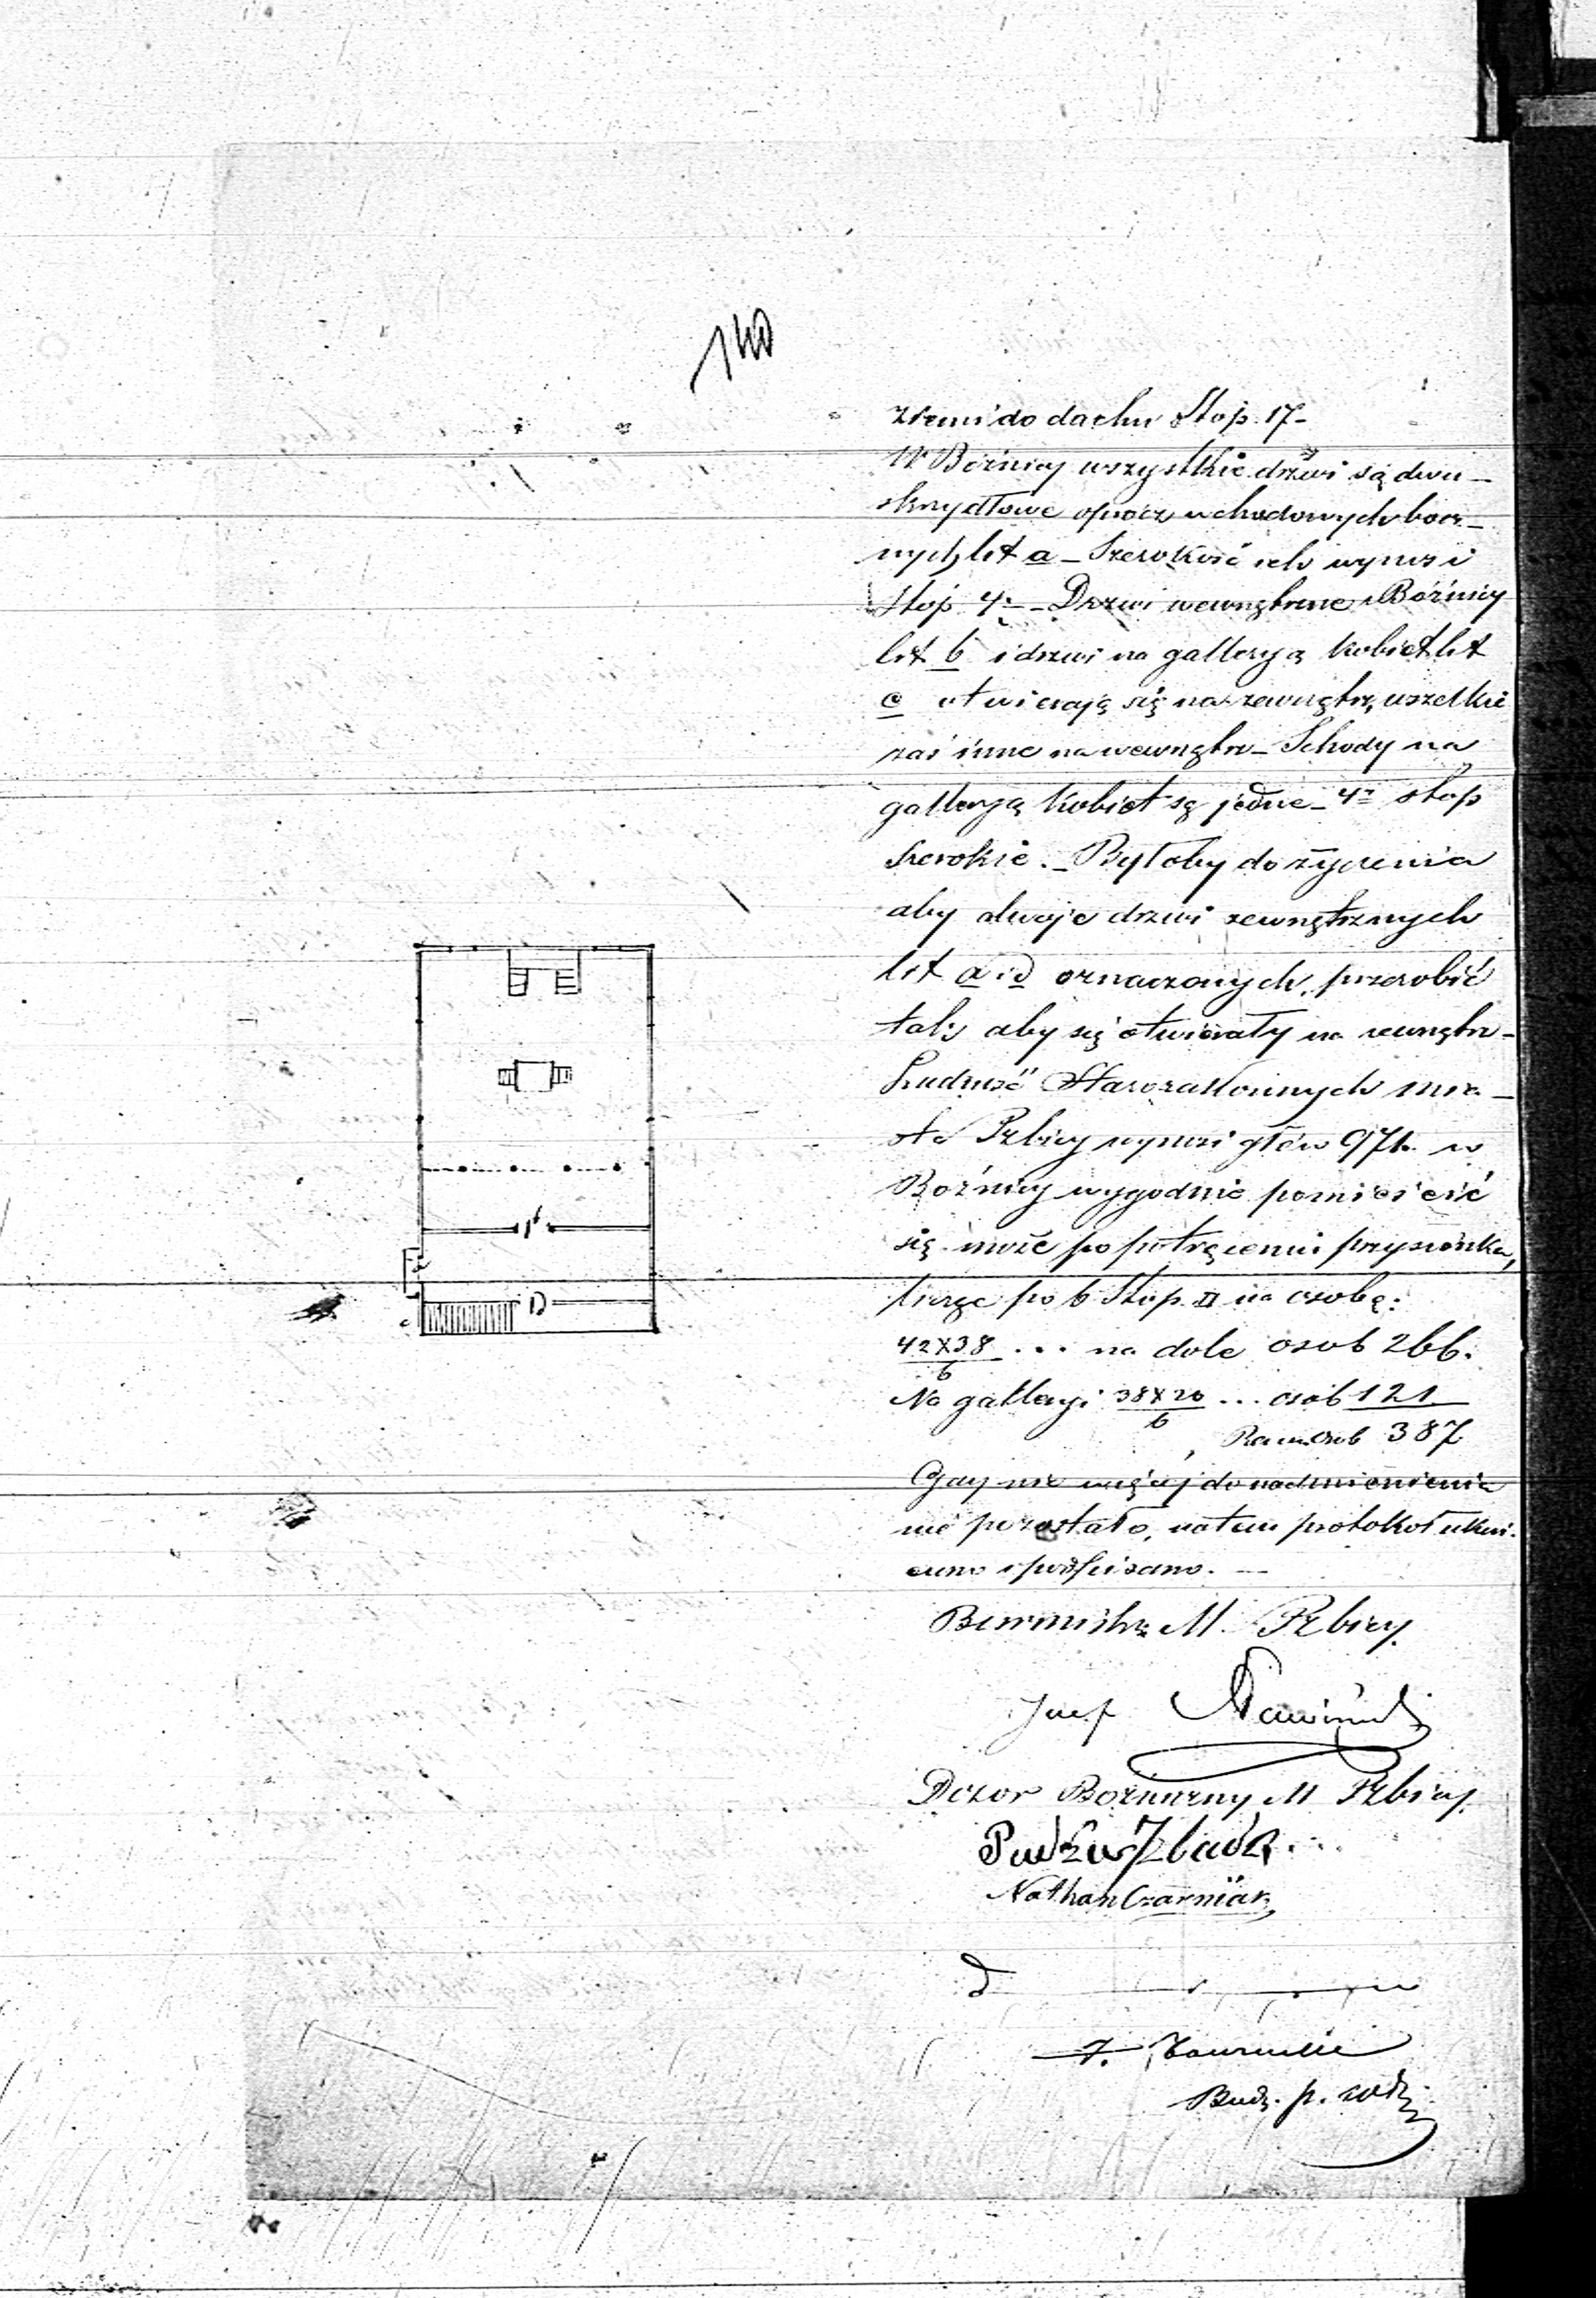 140
ziemi do dachu Stop. 17-
W Bóżnicy wszystkie drzwi są dwu-
skrzydłowe oprócz wchodowych bocz-
nych lit a - Szerokość ich wynosi
Stóp 4. - Drzwi wewnętrzne Bóżnicy
lit b i drzwi na galleryą kobiet lit
c otwierają się na zewnątrz, wszelkie
zaś inne na wewnątrz - Schody na
galleryą kobiet są jedne - 4 stop
szerokie. - Byłoby do życzenia
aby dwoje drzwi zewnętrznych
lit a i d oznaczonych, przerobić
tak, aby się otwierały na zewnątrz -
Ludność Starozakonnych mia-
sta Izbicy wynosi głów 971. w
Bóżnicy wygodnie pomieścić
się może po potrąceniu przysionka,
licząc po 6 Stop □ na osobę:
42X38/6 ... na dole osob 266.
Na galleryi 38X20/6 ... osób 121
Razem osob 387
Gdy nic więcej do nadmienienia
nie pozostało, na tem protokoł ukoń-
czono i podpisano. -
Burmistrz M. Izbicy.
Józef
Dozor Bozniczny M Izbicy.
Nathan Czarniak
d
c
b
D
Bud. p.